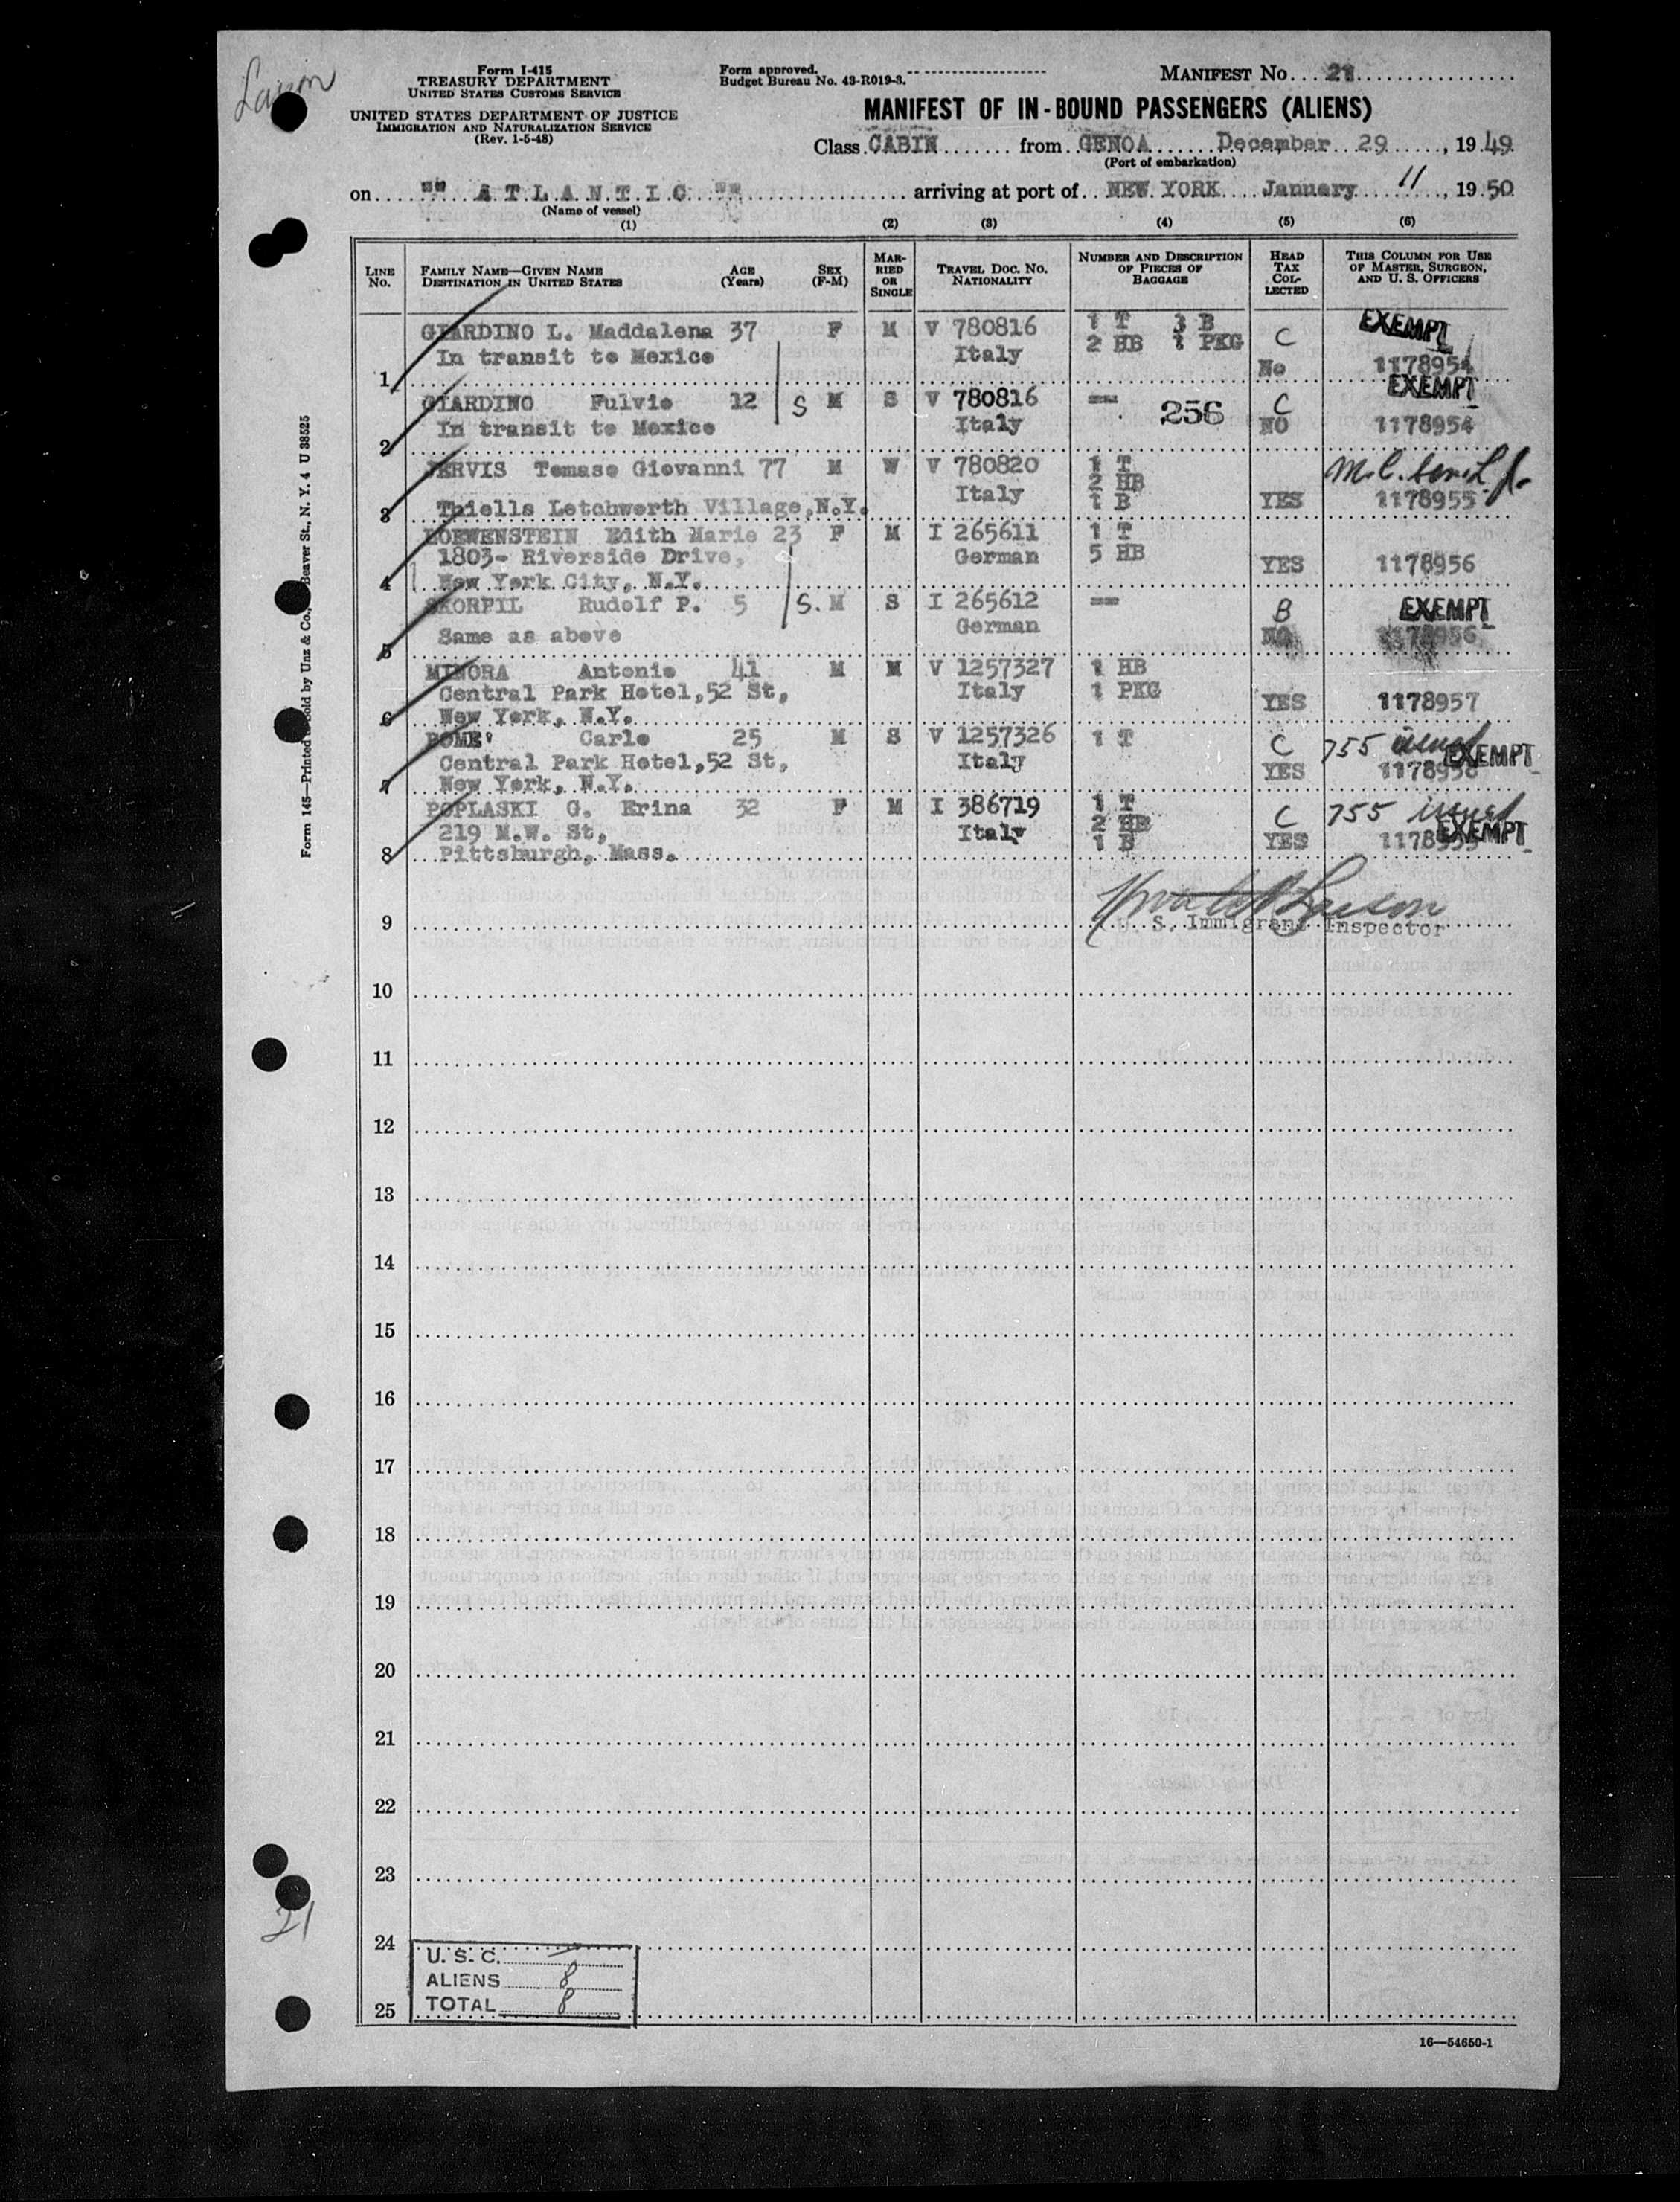 Form I-415
TREASURY DEPARTMENT
UNITED STATES CUSTOMS SERVICE
UNITED STATES DEPARTMENT OF JUSTICE
IMMIGRATION AND NATURALIZATION SERVICE
(Rev. 1-5-48)
Form approved.
Budget Bureau No. 43-R019-3.
MANIFEST No. 21
MANIFEST OF IN-BOUND PASSENGERS (ALIENS)
Class CABIN from GENOA December 29, 1949
(Port of embarkation)
on "" ATLANTIC "" arriving at port of NEW YORK January 11, 1950
(Name of vessel)
(1) (2) (3) (4) (5) (6)
LINE No. FAMILY NAME—GIVEN NAME DESTINATION IN UNITED STATES AGE (Years) SEX (F-M) MARRIED OR SINGLE TRAVEL DOC. NO. NATIONALITY NUMBER AND DESCRIPTION OF PIECES OF BAGGAGE HEAD TAX COLLECTED THIS COLUMN FOR USE OF MASTER, SURGEON, AND U. S. OFFICERS
GIARDINO L. Maddalena 37 F M V 780816 1 T 3 B C EXEMPT
In transit to Mexico Italy 2 HB 1 PKG
1 No 1178954
GIARDINO Fulvio 12 S M S V 780816 -- 256 C EXEMPT
In transit to Mexico Italy NO 1178954
2
JERVIS Tomaso Giovanni 77 M W V 780820 1 T
2 HB
Italy 1 B YES 1178955
3 Thiells Letchworth Village, N.Y.
LOEWENSTEIN Edith Marie 23 F M I 265611 1 T
1803- Riverside Drive, German 5 HB YES 1178956
4 New York City, N.Y.
SKORPIL Rudolf P. 5 S. M S I 265612 -- B EXEMPT
Same as above German NO 1178956
5
MINORA Antonio 41 M M V 1257327 1 HB
Central Park Hotel, 52 St, Italy 1 PKG YES 1178957
6 New York, N.Y.
POME' Carlo 25 M S V 1257326 1 T C 755 issued EXEMPT
Central Park Hotel, 52 St, Italy YES 1178958
7 New York, N.Y.
POPLASKI G. Erina 32 F M I 386719 1 T C 755 issued EXEMPT
219 M.W. St, Italy 2 HB
8 Pittsburgh, Mass. 1 B YES 1178959
9 U. S. Immigrant Inspector
10
11
12
13
14
15
16
17
18
19
20
21
22
23
24
25
U. S. C.
ALIENS 8
TOTAL 8
21
16—54650-1